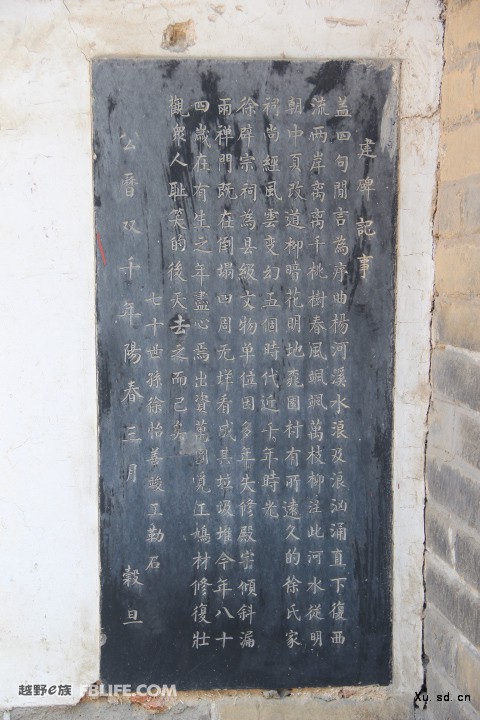 建碑記事
盖四句閒言為序曲楊河溪水浪及浪汹涌直下復西
流两岸离离千桃樹春風颯颯萬枝柳注此河水從明
朝中頁改道柳暗花明地竟園村有所遠久的徐氏家
祠尚經風雲变幻五個時代近千年時光
徐辟宗祠為县级文物单位因多年失修殿宇傾斜漏
雨禅門既在倒塌四周无垟看成其垃圾堆今年八十
四歲在有生之年盡心焉出資萬圆筧工鳩材修復壮
觀衆人耻笑的後天去之而已矣
七十世孫徐怡善竣工勒石
公曆双千年陽春三月 穀旦
越野e族 FBLIFE.COM
Xu.sd.cn